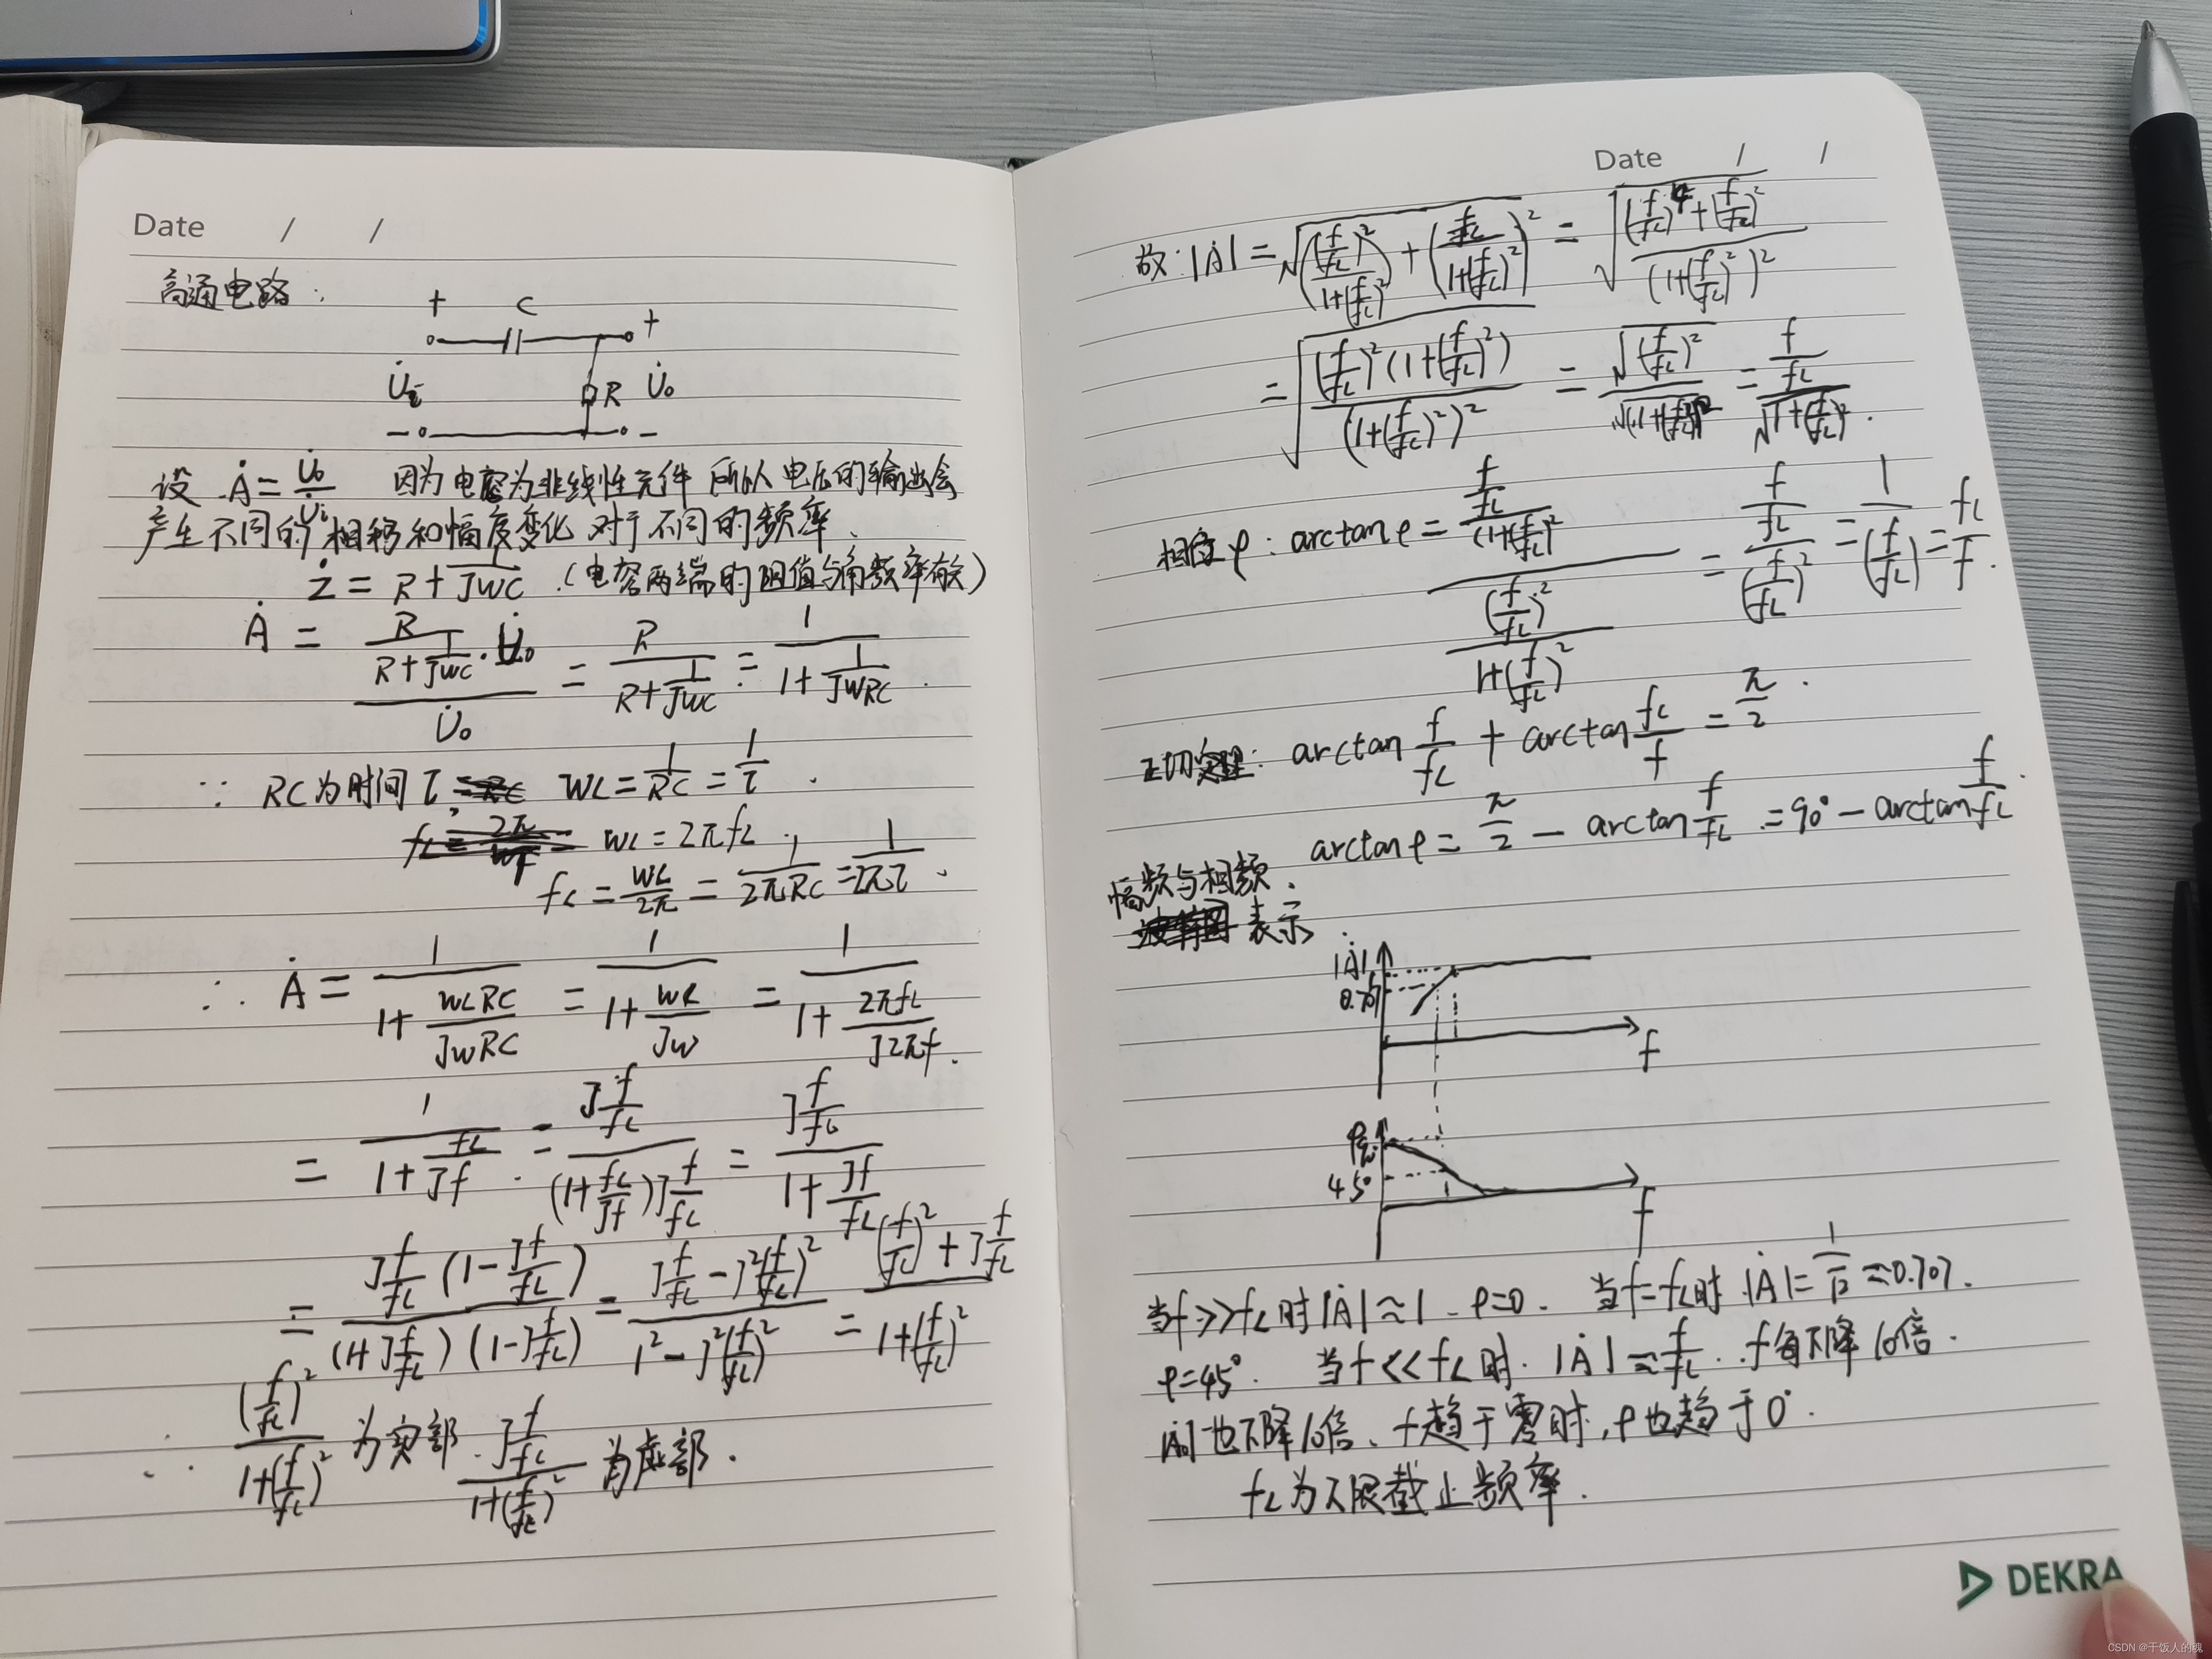 Date / /
高通电路:
+ C +
U̇i R U̇o
- -
设 Ȧ = U̇o/U̇i 因为电容为非线性元件 所以电压的输出会
产生不同的相移和幅度变化 对于不同的频率.
Ż = R + 1/JWC (电容两端的阻值与角频率有关)
Ȧ = (R/(R+1/JWC)·U̇o)/U̇o = R/(R+1/JWC) = 1/(1+1/JWRC).
∵ RC为时间τ, WL = 1/RC = 1/τ.
WL = 2πfL,
fL = WL/2π = 1/2πRC = 1/2πτ.
∴ Ȧ = 1/(1+WLRC/JWRC) = 1/(1+WL/JW) = 1/(1+2πfL/J2πf).
= 1/(1+fL/Jf) = J(f/fL)/((1+fL/Jf)J(f/fL)) = J(f/fL)/(1+Jf/fL)
= J(f/fL)(1-Jf/fL)/((1+Jf/fL)(1-Jf/fL)) = (J(f/fL)-J²(f/fL)²)/(1²-J²(f/fL)²) = ((f/fL)²+Jf/fL)/(1+(f/fL)²)
∴ (f/fL)²/(1+(f/fL)²) 为实部. J(f/fL)/(1+(f/fL)²) 为虚部.
Date / /
故: |Ȧ| = √(((f/fL)²/(1+(f/fL)²))² + ((f/fL)/(1+(f/fL)²))²) = √(((f/fL)⁴+(f/fL)²)/(1+(f/fL)²)²)
= √((f/fL)²(1+(f/fL)²)/(1+(f/fL)²)²) = √(f/fL)²/√(1+(f/fL)²) = (f/fL)/√(1+(f/fL)²).
相位φ: arctanφ = ((f/fL)/(1+(f/fL)²))/((f/fL)²/(1+(f/fL)²)) = (f/fL)/(f/fL)² = 1/(f/fL) = fL/f.
正切定理: arctan f/fL + arctan fL/f = π/2.
arctanφ = π/2 - arctan f/fL = 90° - arctan f/fL.
幅频与相频.
表示
|Ȧ|
0.707
f
φ
90°
45°
f
当f>>fL时|Ȧ|≈1. φ=0. 当f=fL时 |Ȧ|=1/√2≈0.707.
φ=45°. 当f<<fL时. |Ȧ|≈f/fL. f每下降10倍.
|Ȧ|也下降10倍、f趋于零时, φ也趋于0°.
fL为下限截止频率.
DEKRA
CSDN @干饭人的魂